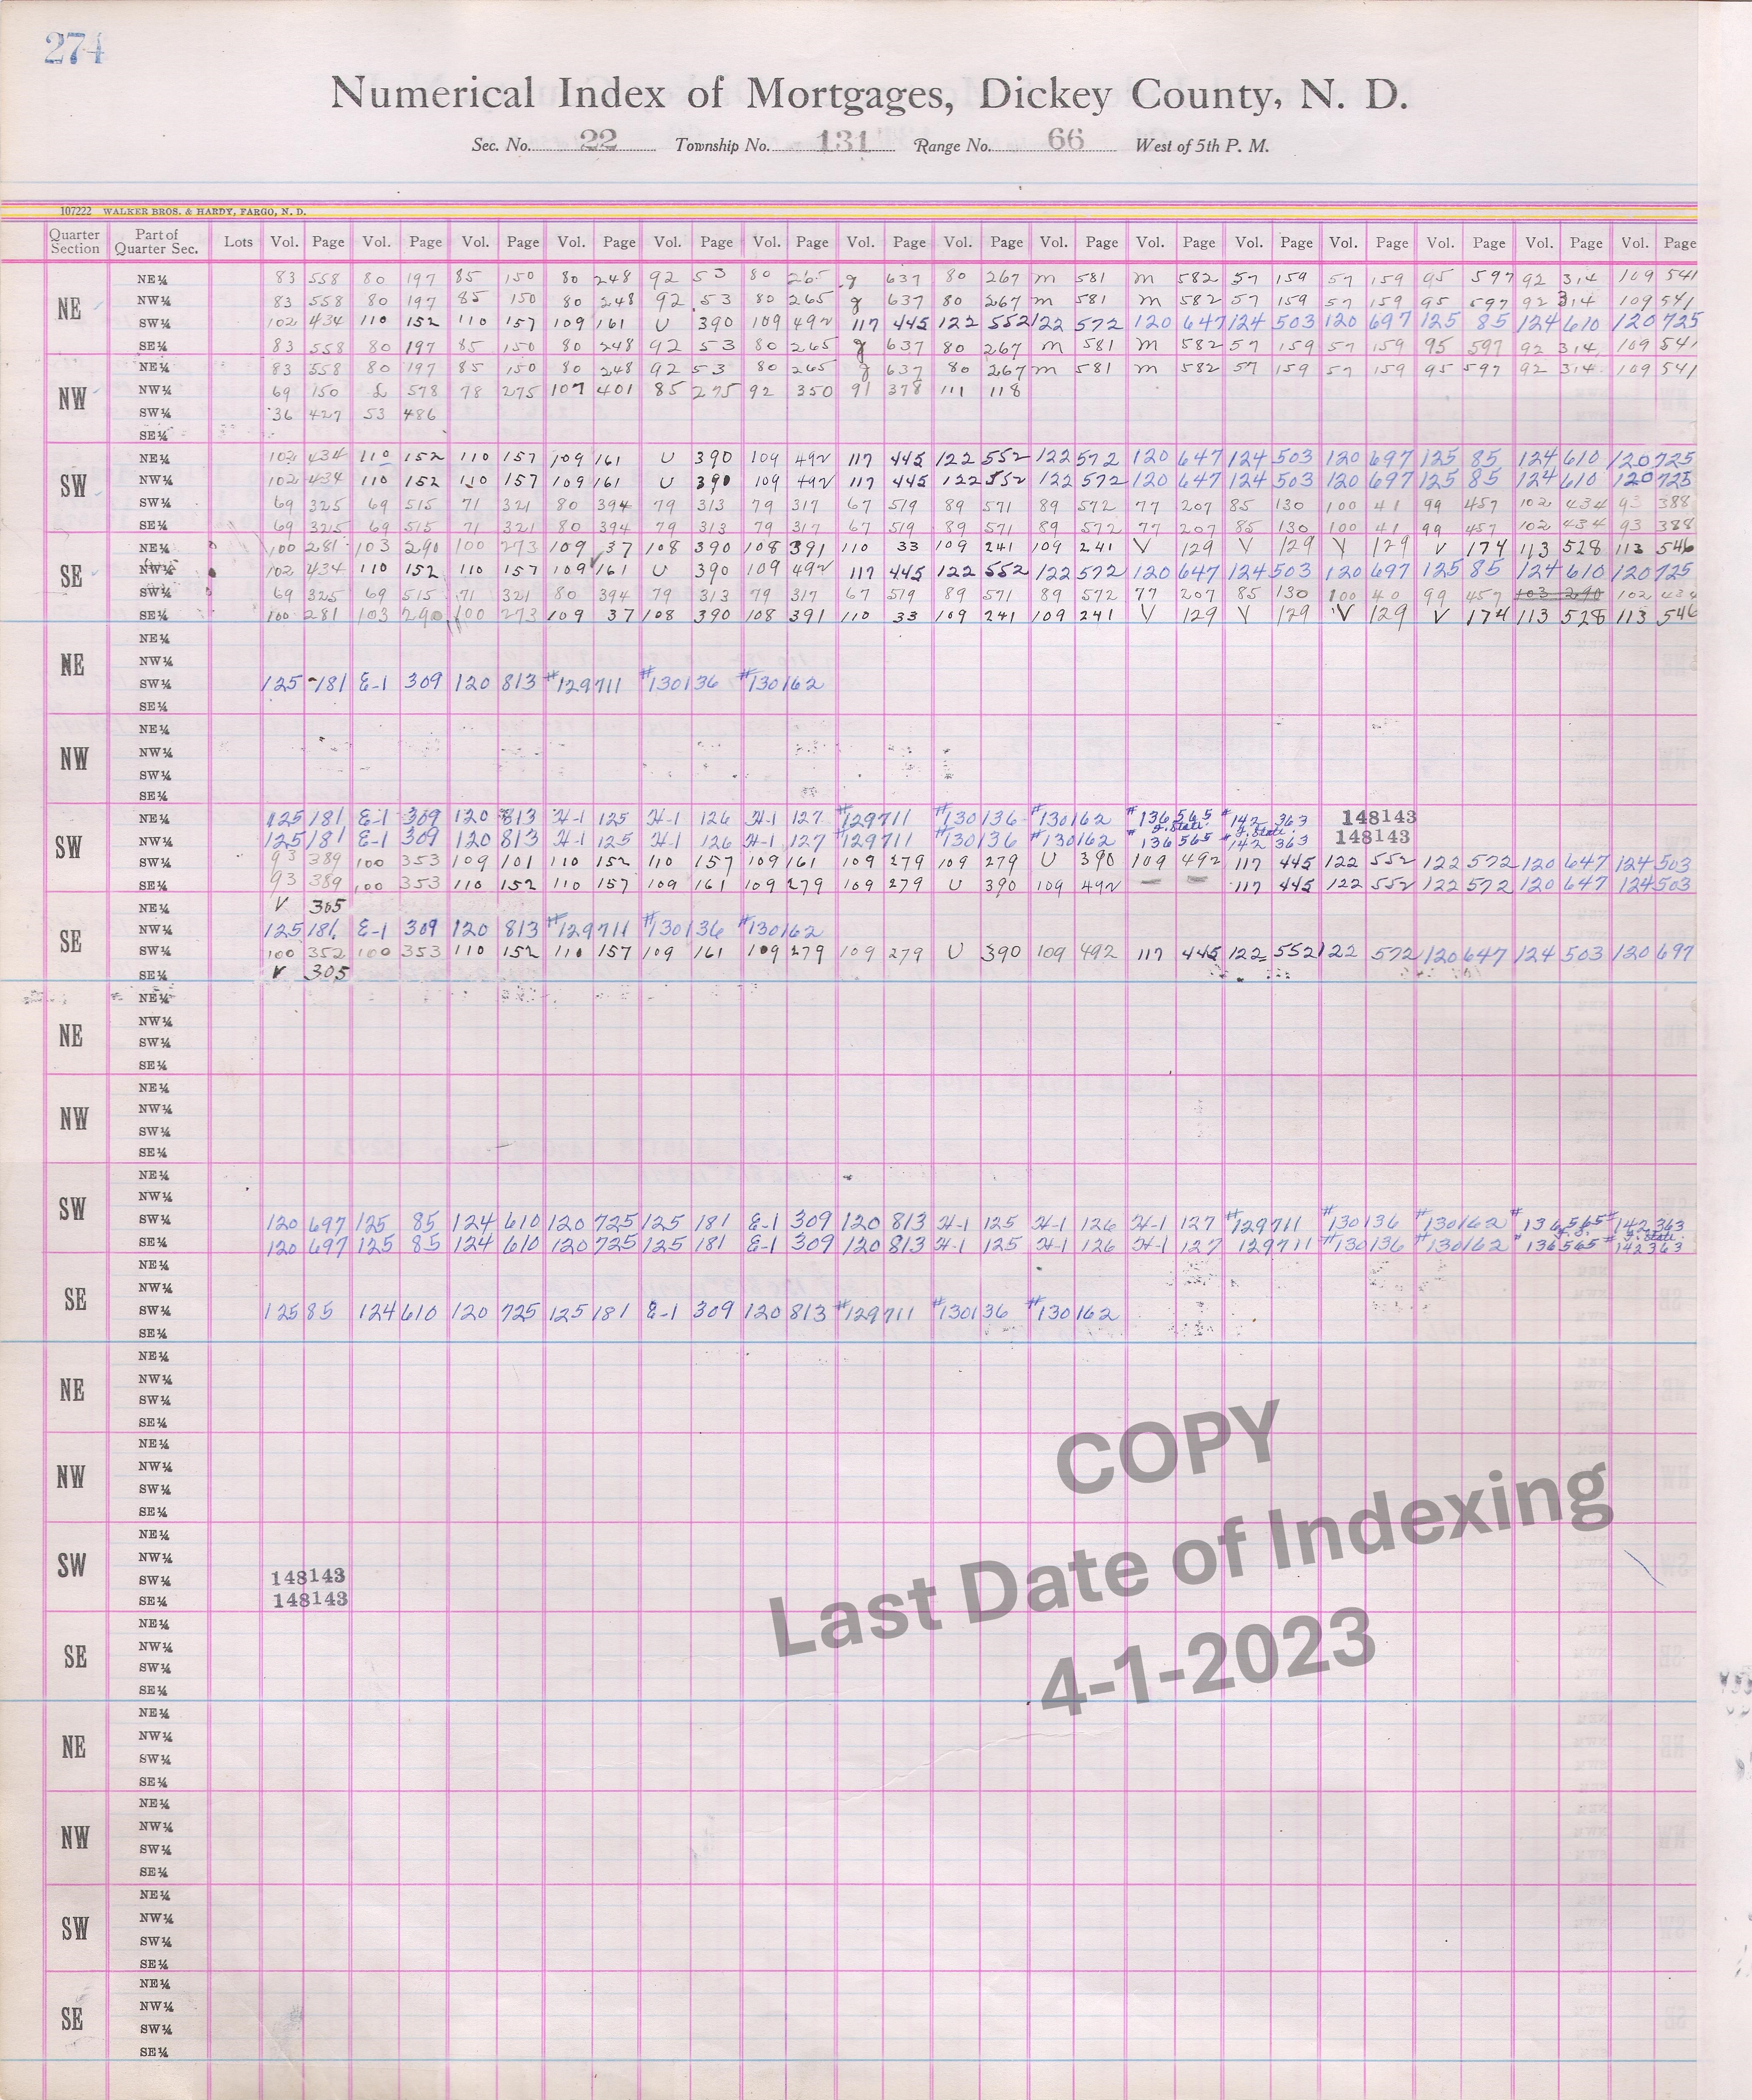 274
Numerical Index of Mortgages, Dickey County, N. D.
Sec. No. 22 Township No. 131 Range No. 66 West of 5th P. M.
107222 WALKER BROS. & HARDY, FARGO, N. D.
Quarter Section Part of Quarter Sec. Lots Vol. Page Vol. Page Vol. Page Vol. Page Vol. Page Vol. Page Vol. Page Vol. Page Vol. Page Vol. Page Vol. Page Vol. Page Vol. Page Vol. Page Vol. Page
NE
NE¼ 83 558 80 197 85 150 80 248 92 53 80 265 g 637 80 267 m 581 m 582 57 159 57 159 95 597 92 314 109 541
NW¼ 83 558 80 197 85 150 80 248 92 53 80 265 g 637 80 267 m 581 m 582 57 159 57 159 95 597 92 314 109 541
SW¼ 102 434 110 152 110 157 109 161 U 390 109 492 117 445 122 552 122 572 120 647 124 503 120 697 125 85 124 610 120 725
SE¼ 83 558 80 197 85 150 80 248 92 53 80 265 g 637 80 267 m 581 m 582 57 159 57 159 95 597 92 314 109 541
NW
NE¼ 83 558 80 197 85 150 80 248 92 53 80 265 g 637 80 267 m 581 m 582 57 159 57 159 95 597 92 314 109 541
NW¼ 69 150 L 578 78 275 107 401 85 275 92 350 91 378 111 118
SW¼ 36 427 53 486
SE¼
SW
NE¼ 102 434 110 152 110 157 109 161 U 390 109 492 117 445 122 552 122 572 120 647 124 503 120 697 125 85 124 610 120 725
NW¼ 102 434 110 152 110 157 109 161 U 390 109 492 117 445 122 552 122 572 120 647 124 503 120 697 125 85 124 610 120 725
SW¼ 69 325 69 515 71 321 80 394 79 313 79 317 67 519 89 571 89 572 77 207 85 130 100 41 99 457 102 434 93 388
SE¼ 69 325 69 515 71 321 80 394 79 313 79 317 67 519 89 571 89 572 77 207 85 130 100 41 99 457 102 434 93 388
SE
NE¼ 100 281 103 290 100 273 109 37 108 390 108 391 110 33 109 241 109 241 V 129 V 129 V 129 V 174 113 528 113 546
NW¼ 102 434 110 152 110 157 109 161 U 390 109 492 117 445 122 552 122 572 120 647 124 503 120 697 125 85 124 610 120 725
SW¼ 69 325 69 515 71 321 80 394 79 313 79 317 67 519 89 571 89 572 77 207 85 130 100 40 99 457 103 290 102 434
SE¼ 100 281 103 290 100 273 109 37 108 390 108 391 110 33 109 241 109 241 V 129 V 129 V 129 V 174 113 528 113 546
NE
NE¼
NW¼
SW¼ 125 181 E-1 309 120 813 #129711 #130136 #130162
SE¼
NW
NE¼
NW¼
SW¼
SE¼
SW
NE¼ 125 181 E-1 309 120 813 H-1 125 H-1 126 H-1 127 #129711 #130136 #130162 #136565 #142363 148143
NW¼ 125 181 E-1 309 120 813 H-1 125 H-1 126 H-1 127 #129711 #130136 #130162 #136565 #142363 148143
SW¼ 93 389 100 353 109 101 110 152 110 157 109 161 109 279 109 279 U 390 109 492 117 445 122 552 122 572 120 647 124 503
SE¼ 93 389 100 353 110 152 110 157 109 161 109 279 109 279 U 390 109 492 — — 117 445 122 552 122 572 120 647 124 503
SE
NE¼ V 305
NW¼ 125 181 E-1 309 120 813 #129711 #130136 #130162
SW¼ 100 352 100 353 110 152 110 157 109 161 109 279 109 279 U 390 109 492 117 445 122 552 122 572 120 647 124 503 120 697
SE¼ V 305
NE
NE¼
NW¼
SW¼
SE¼
NW
NE¼
NW¼
SW¼
SE¼
SW
NE¼
NW¼
SW¼ 120 697 125 85 124 610 120 725 125 181 E-1 309 120 813 H-1 125 H-1 126 H-1 127 #129711 #130136 #130162 #136565 #142363
SE¼ 120 697 125 85 124 610 120 725 125 181 E-1 309 120 813 H-1 125 H-1 126 H-1 127 129711 #130136 #130162 #136565 #142363
SE
NE¼
NW¼
SW¼ 125 85 124 610 120 725 125 181 E-1 309 120 813 #129711 #130136 #130162
SE¼
NE
NE¼
NW¼
SW¼
SE¼
NW
NE¼
NW¼
SW¼
SE¼
SW
NE¼
NW¼
SW¼ 148143
SE¼ 148143
SE
NE¼
NW¼
SW¼
SE¼
NE
NE¼
NW¼
SW¼
SE¼
NW
NE¼
NW¼
SW¼
SE¼
SW
NE¼
NW¼
SW¼
SE¼
SE
NE¼
NW¼
SW¼
SE¼
COPY
Last Date of Indexing
4-1-2023